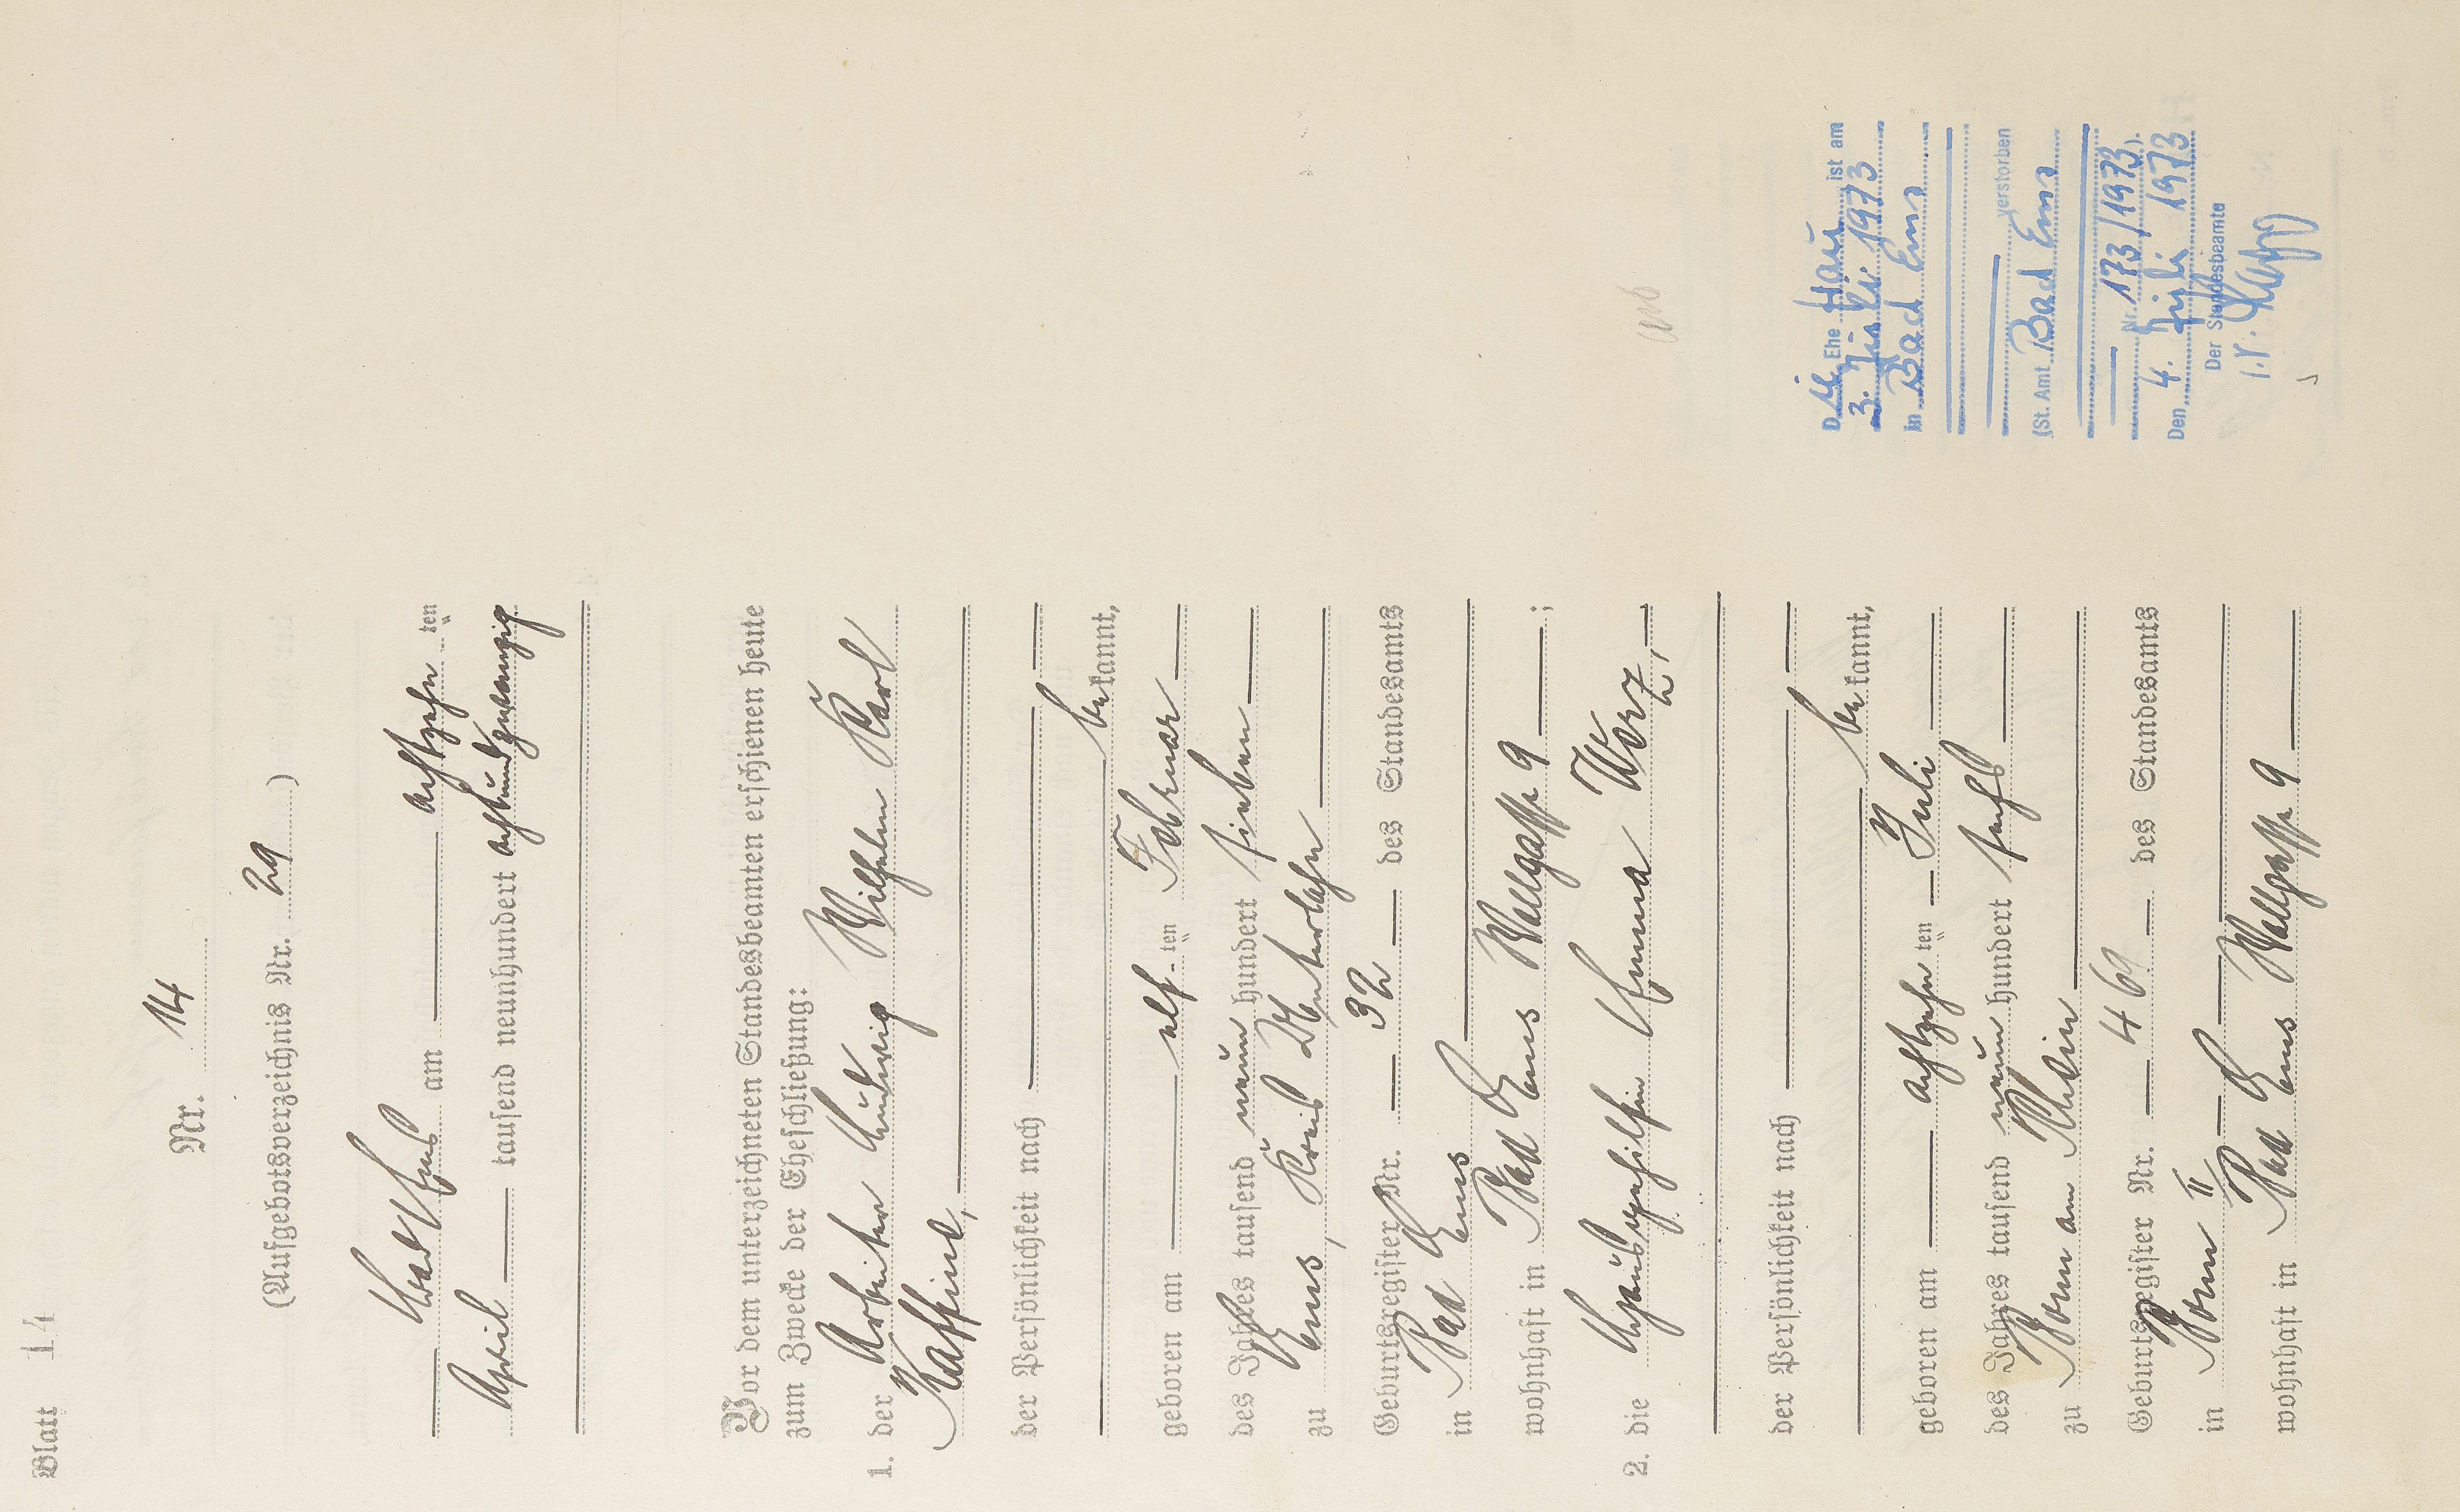 Blatt 14
Nr. 14
(Aufgebotsverzeichnis Nr. 29)
Bad Ems am achtzehn ten
April tausend neunhundert achtundzwanzig
Vor dem unterzeichneten Standesbeamten erschienen heute
zum Zwecke der Eheschließung:
1. der Arbeiter Ludwig Wilhelm Karl
der Persönlichkeit nach
be kannt,
geboren am elf ten Februar
des Jahres tausend neun hundert sieben
zu Ems, Kreis Unterlahn
Geburtsregister Nr. 32 des Standesamts
in Bad Ems
wohnhaft in Bad Ems Wallgasse 9 ;
2. die Hausgehilfin Emma Werz,
der Persönlichkeit nach
be kannt,
geboren am achtzehn ten Juli
des Jahres tausend neun hundert sechs
zu Bonn am Rhein
Geburtsregister Nr. 469 des Standesamts
in Bonn II
wohnhaft in Bad Ems Wallgasse 9
Die Ehefrau ist am
3. Juli 1973
in Bad Ems
verstorben
(St. Amt Bad Ems
Nr. 173/1973).
Den 4. Juli 1973
Der Standesbeamte